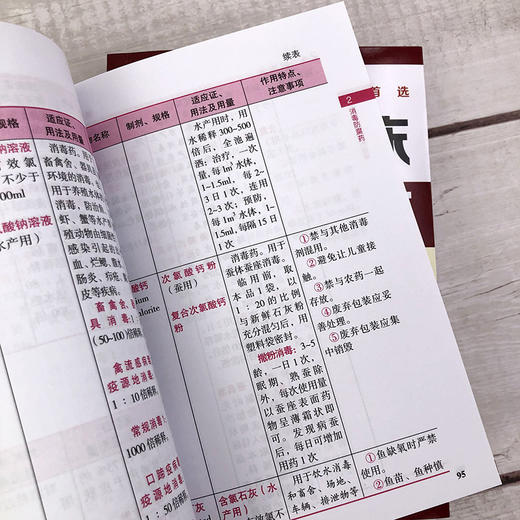 续表
规格
适应证、
用法及用量
名称
制剂、规格
适应证、
用法及用量
作用特点、
注意事项
2
消毒防腐药
首选
钠溶液
效氯
不少于
00ml
酸钠溶液
水产用)
消毒药。用
畜禽舍、器具
环境的消毒。
用于养殖水体
消毒,防治鱼
虾、蟹等水产
殖动物由细菌
感染引起的
血、烂鳃、腹
肠炎、疖疮
皮等疾病。
畜禽舍、
具消毒:
(50~100)倍稀释,
禽流感病
疫源地消毒
1:10倍稀释,
常规消毒:
1000倍稀释,
口蹄疫病
疫源地消毒
1:
酸钙
ium
lorite
次氯酸钙粉
(蚕用)
复合次氯酸钙
粉
水产用时,用
水稀释300~500
倍后,全池遍
洒:治疗,一次
量,每1m³水体,
1~1.5ml,每2~
3日1次,连用
2~3次;预防,
每1m³水体,1~
1.5ml,每隔15日
1次
消毒药。用于
蚕体蚕座消毒。
临用前,取
本品1袋,以
1:20的比例
与新鲜石灰粉
充分混匀后,用
塑料袋密封。
撒粉消毒:3~5
龄,一日1次,
眠期、熟蚕除
外,每次使用量
以蚕座表面药
物呈薄霜状即
可。发现病蚕
后,每日可增加
用药1次
①禁与其他消毒
剂混用。
②避免让儿童接
触。
③禁与农药一起
存放。
④废弃包装应妥
善处理。
⑤废弃包装应集
中销毁
含氯石灰(水
产用)
用于饮水消毒
和畜舍、场地、
车辆、排泄物等
①鱼缺氧时严禁
使用。
②鱼苗、鱼种慎
95